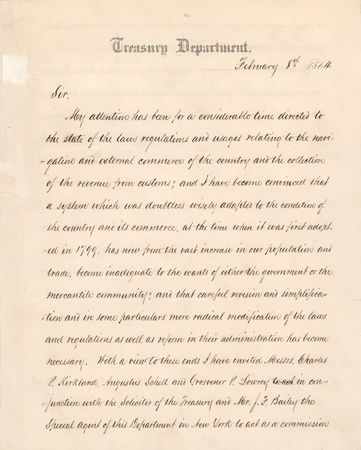 Treasury Department.
February 8th 1864
Sir,
My attention has been for a considerable time directed
to the state of the laws regulations and usages relating to the navi-
-gation and external commerce of the country and the collection
of the revenue from customs; and I have become convinced that
a system which was doubtless wisely adapted to the condition of
the country and its commerce, at the time when it was first adopt-
-ed in 1799, has now from the vast increase in our population and
trade, become inadequate to the wants of either the government or the
mercantile community; and that careful revision and simplifica-
-tion and in some particulars more radical modification of the laws
and regulations as well as reform in their administration has become
necessary. With a view to these ends I have invited Messrs. Charles
P. Kirkland, Augustus Schell and Grosvenor P. Lowrey in con-
-junction with the Solicitor of the Treasury and Mr. J. F. Bailey the
Special Agent of this Department in New York to act as a commission